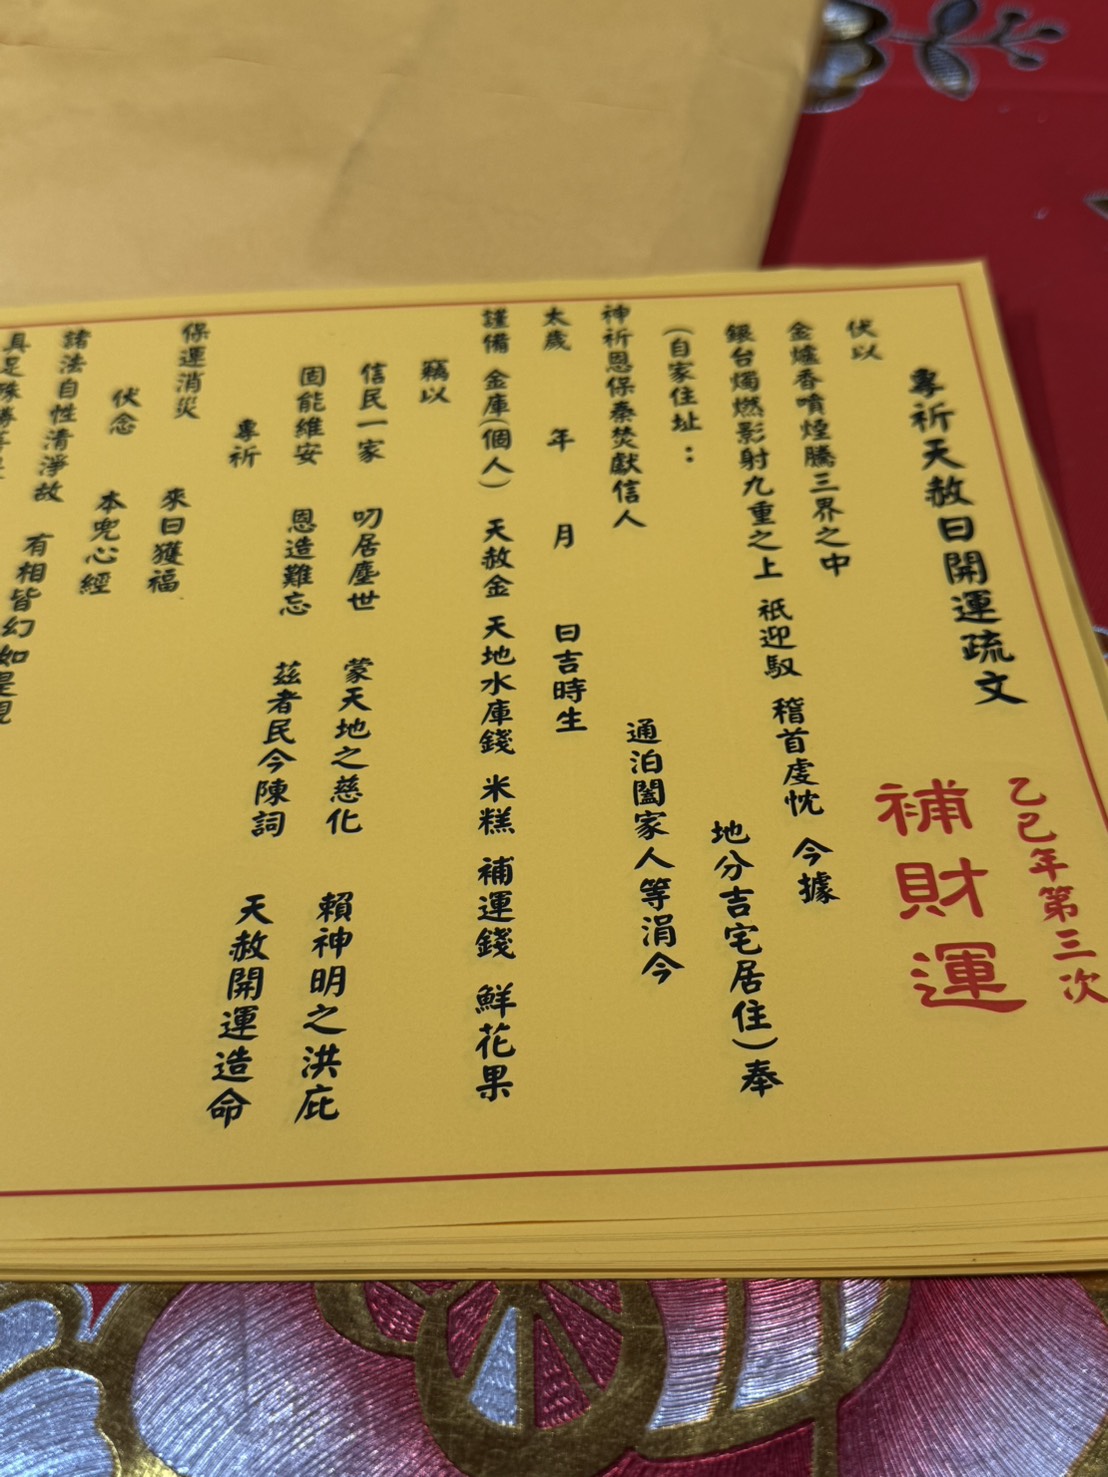 專祈天赦日開運疏文
乙巳年第三次
補財運
伏以
金爐香噴煙騰三界之中
銀台燭燃影射九重之上 祇迎馭 稽首虔忱 今據
(自家住址： 地分吉宅居住)奉
神祈恩保奏焚獻信人 通泊闔家人等涓今
太歲 年 月 日吉時生
謹備 金庫(個人) 天赦金 天地水庫錢 米糕 補運錢 鮮花果
竊以
信民一家 叨居塵世 蒙天地之慈化 賴神明之洪庇
固能維安 恩造難忘 茲者民今陳詞 天赦開運造命
專祈
保運消災 來日獲福
伏念 本兜心經
諸法自性清淨故 有相皆幻如是現
具足殊勝